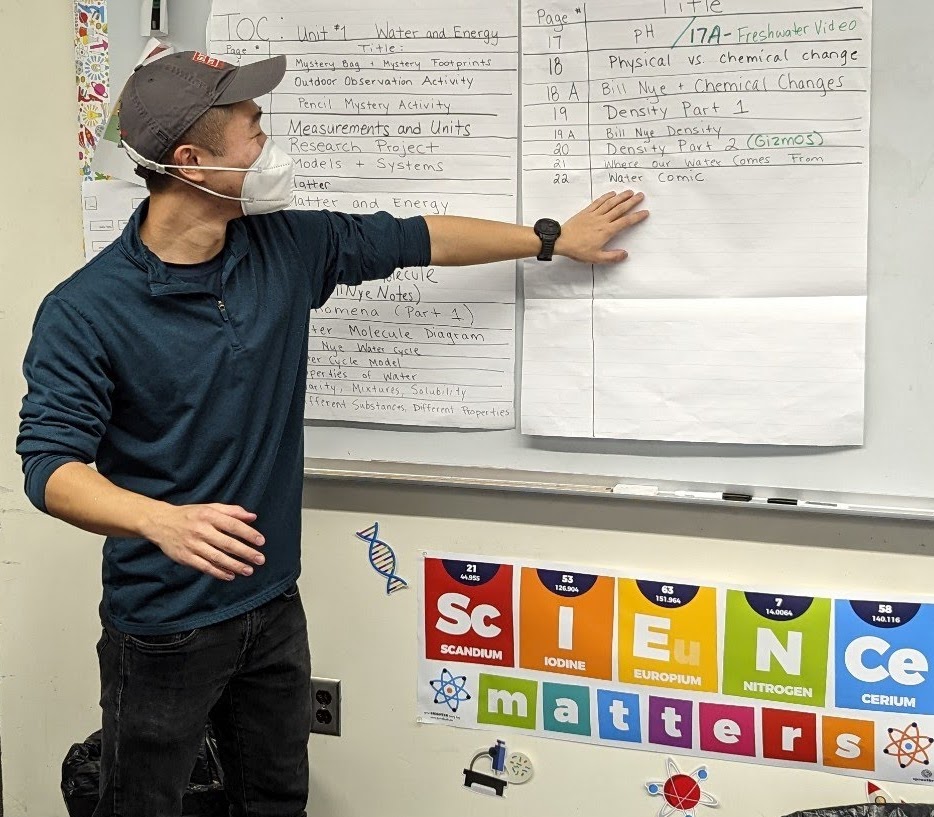 TOC: Unit #1 Water and Energy
Page # Title:
Mystery Bag + Mystery Footprints
Outdoor Observation Activity
Pencil Mystery Activity
Measurements and Units
Research Project
Models + Systems
Matter
Matter and Energy
olecule
Nye Notes)
nomena (Part 1)
ter Molecule Diagram
Nye Water Cycle
er Cycle Model
perties of Water
arity, Mixtures, Solubility
fferent Substances, Different Properties
Page # Title
17 pH / 17A- Freshwater Video
18 Physical vs. chemical change
18 A Bill Nye + Chemical Changes
19 Density Part 1
19 A Bill Nye Density
20 Density Part 2 (Gizmos)
21 Where our Water Comes From
22 Water Comic
21 53 63 7 58
44.955 126.904 151.964 14.0064 140.116
Sc I Eu N Ce
SCANDIUM IODINE EUROPIUM NITROGEN CERIUM
matters